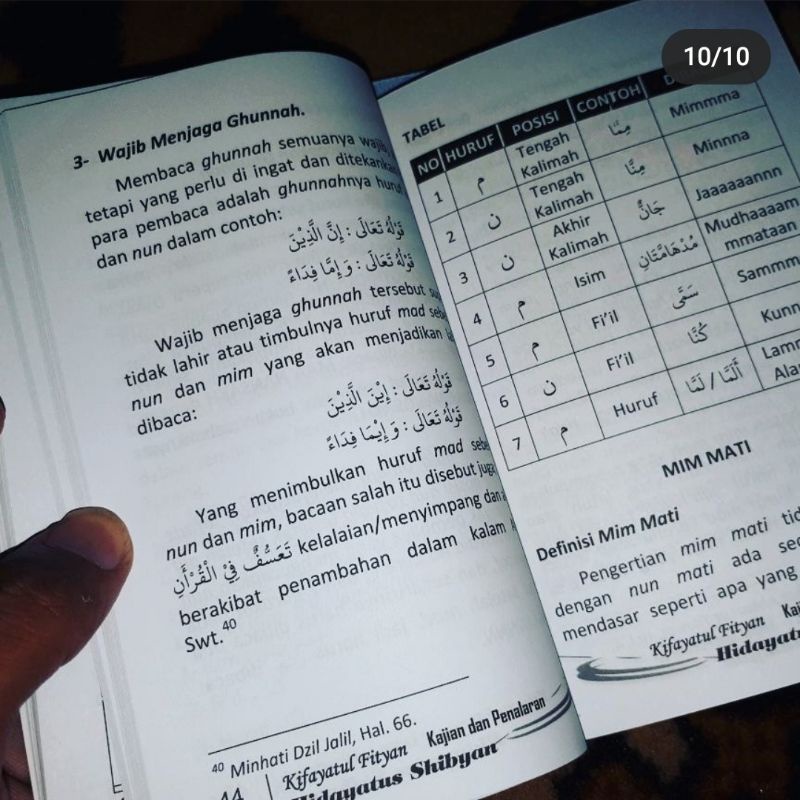 10/10
3- Wajib Menjaga Ghunnah.
Membaca ghunnah semuanya wajib,
tetapi yang perlu di ingat dan ditekankan
para pembaca adalah ghunnahnya huruf
dan nun dalam contoh:
قَوْلُهُ تَعَالَى : إِنَّ الَّذِيْنَ
قَوْلُهُ تَعَالَى : وَإِمَّا فِدَاءً
Wajib menjaga ghunnah tersebut
tidak lahir atau timbulnya huruf mad
nun dan mim yang akan menjadikan
dibaca:
قَوْلُهُ تَعَالَى : إِيْنَ الَّذِيْنَ
قَوْلُهُ تَعَالَى : وَإِيْمَا فِدَاءً
Yang menimbulkan huruf mad
nun dan mim, bacaan salah itu disebut juga
تَعَسُّفٌ فِيْ الْقُرْأَنِ kelalaian/menyimpang dan
berakibat penambahan dalam kalam
Swt.40
40 Minhati Dzil Jalil, Hal. 66.
44 Kifayatul Fityan Kajian dan Penalaran
Hidayatus Shibyan
TABEL
NO HURUF POSISI CONTOH
1 م Tengah Kalimah مِمَّا Mimmma
2 ن Tengah Kalimah مِنَّا Minnna
3 ن Akhir Kalimah جَانٌّ Jaaaaaannn
4 م Isim مُدْهَامَّتَانِ Mudhaaaam mmataan
5 م Fi'il سَمَّى Sammm
6 ن Fi'il كُنَّا Kunn
7 م Huruf أَلَمَّا / لَمَّا Lamm
MIM MATI
Definisi Mim Mati
Pengertian mim mati
dengan nun mati ada
mendasar seperti apa yang
Kifayatul Fityan